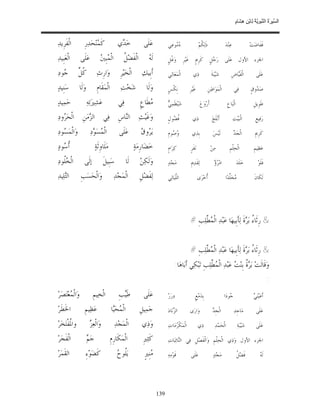 السيرة النبوية لابن هشام
فَفَاضَتْ عِنْدَ ذَلِكُمْ دُمُوعِي عَلَى خَدَّي كَمُنْحَدِرِ الْفَرِيدِ
الجزء الأول عَلَى رَجُلٍ كَرِيمٍ غَيْرِ وَغْلٍ لَهُ الْفَضْلُ الْمُبِينُ عَلَى الْعَبِيدِ
عَلَى الْفَيَّاضِ شَيْبَةَ ذِي الْمَعَالِي أَبِيكِ الْخَيْرِ وَارِثِ كُلِّ جُودِ
صَدُوقٍ فِي الْمَوَاطِنِ غَيْرِ نِكْسٍ وَلَا شَخْتِ الْمَقَامِ وَلَا سَنِيدِ
طَوِيلِ الْبَاعِ أَرْوَعَ شَيْظَمِيٍّ مُطَاعٍ فِي عَشِيرَتِهِ حَمِيدِ
رَفِيعِ الْبَيْتِ أَبْلَجَ ذِي فُضُولٍ وَغَيْثِ النَّاسِ فِي الزَّمَنِ الْحَرُودِ
كَرِيمِ الْجَدِّ لَيْسَ بِذِي وُصُومٍ يَرُوقُ عَلَى الْمُسَوَّدِ وَالْمَسُودِ
عَظِيمِ الْحِلْمِ مِنْ نَفَرٍ كِرَامٍ خَضَارِمَةٍ مَلَاوِثَةٍ أُسُودِ
فَلَوْ خَلَدَ امْرُؤٌ لِقَدِيمِ مَجْدٍ وَلَكِنْ لَا سَبِيلَ إلَى الْخُلُودِ
لَكَانَ مُخَلَّدًا أُخْرَى اللَّيَالِي لِفَضْلِ الْمَجْدِ وَالْحَسَبِ التَّلِيدِ
& رِثَاءُ بَرَّةَ لِأَبِيهَا عَبْدِ الْمُطَّلِبِ #
& رِثَاءُ بَرَّةَ لِأَبِيهَا عَبْدِ الْمُطَّلِبِ #
وَقَالَتْ بَرَّةُ بِنْتُ عَبْدِ الْمُطَّلِبِ تَبْكِي أَبَاهَا:
أَعَيْنَيَّ جُودَا بِدَمْعٍ دِرَرْ عَلَى طَيِّبِ الْخِيمِ وَالْمُعْتَصَرْ
عَلَى مَاجِدِ الْجَدِّ وَارِي الزِّنَادِ جَمِيلِ الْمُحَيَّا عَظِيمِ الْخَطَرْ
عَلَى شَيْبَةِ الْحَمْدِ ذِي الْمَكْرُمَاتِ وَذِي الْمَجْدِ وَالْعِزِّ وَالْمُفْتَخَرْ
الجزء الأول وَذِي الْحِلْمِ وَالْفَصْلِ فِي النَّائِبَاتِ كَثِيرِ الْمَكَارِمِ جَمِّ الْفَجَرْ
لَهُ فَضْلُ مَجْدٍ عَلَى قَوْمِهِ مُنِيرٍ يَلُوحُ كَضَوْءِ الْقَمَرْ
139